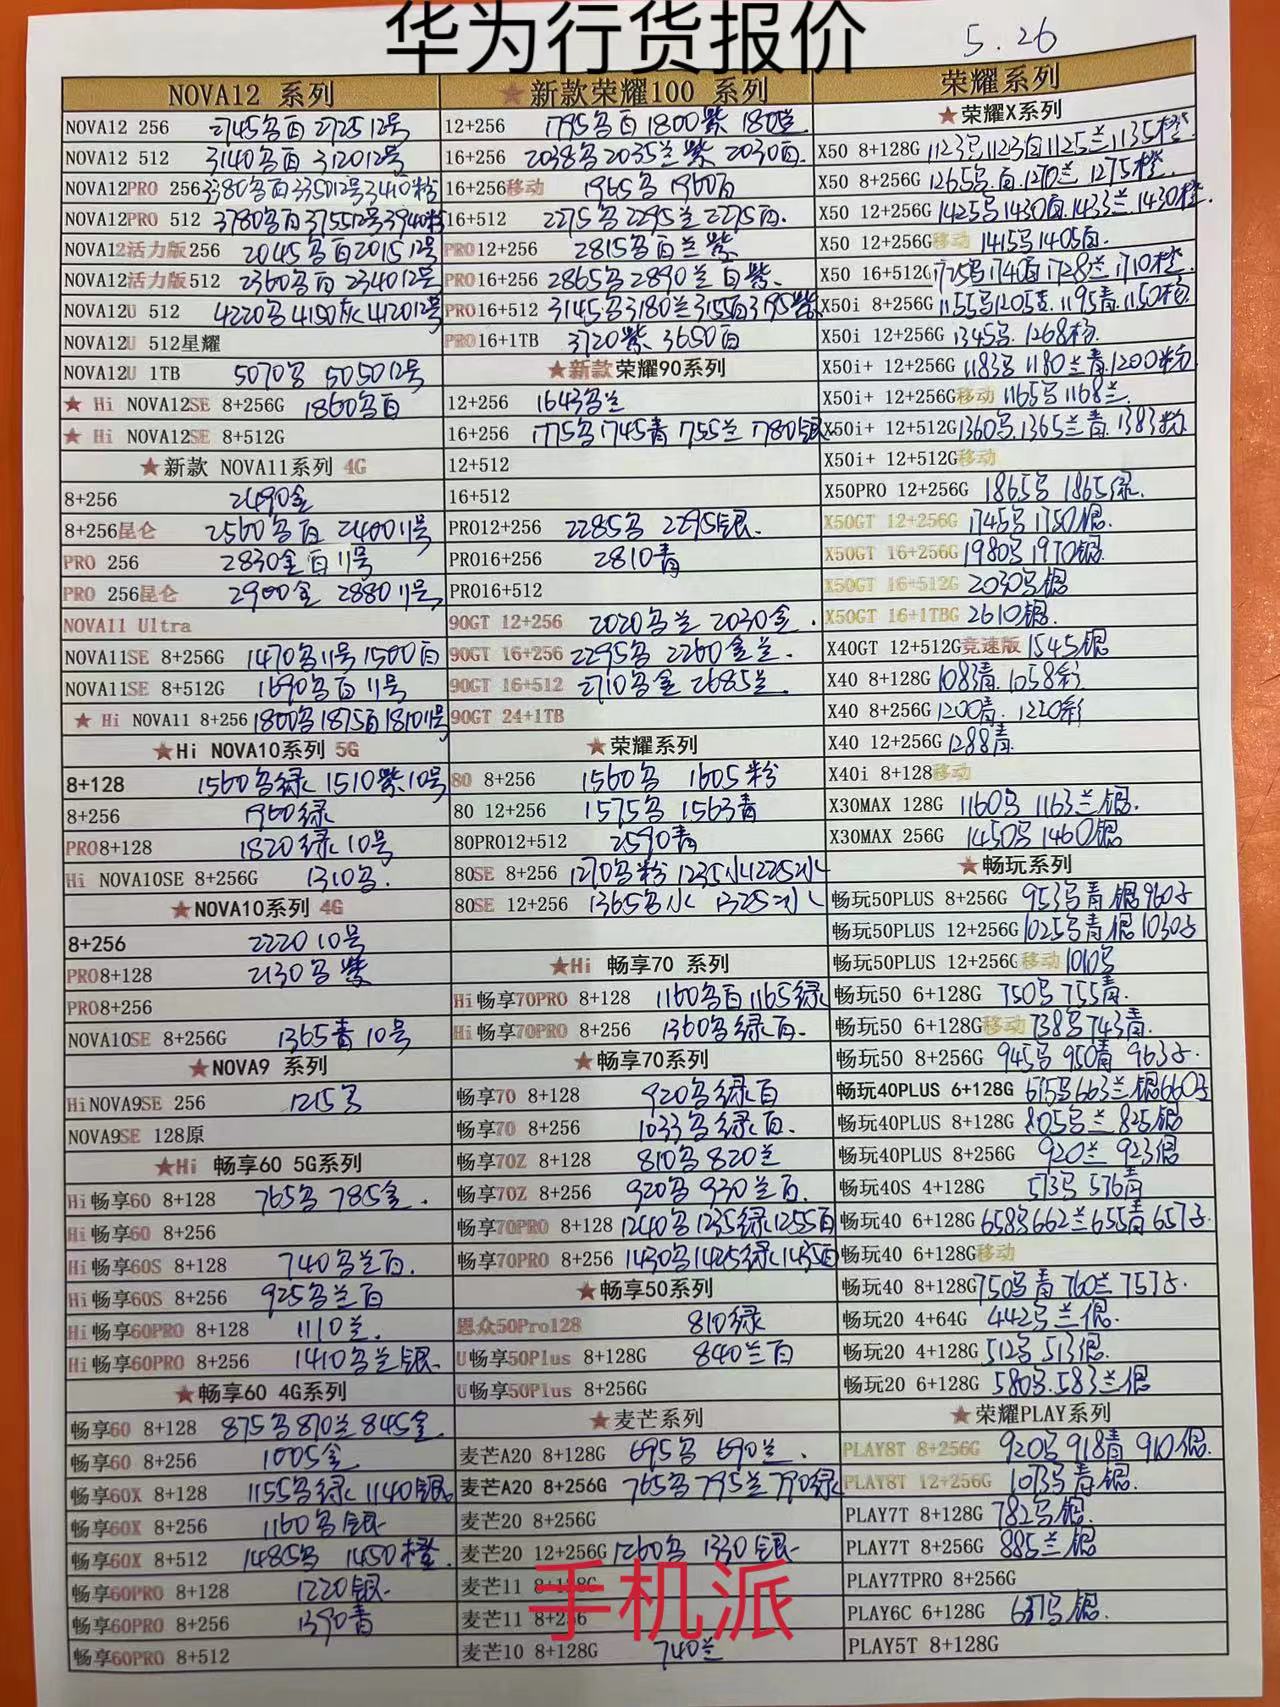 华为行货报价
5.26
NOVA12 系列
NOVA12 256 2745 白 2725 12号
NOVA12 512 3140 白 3120 12号
NOVA12PRO 256 3380 白 3350 12号 3410 粉
NOVA12PRO 512 3780 白 3755 12号 3940 粉
NOVA12活力版256 2045 白 2015 12号
NOVA12活力版512 2360 白 2340 12号
NOVA12U 512 4220 4150灰 4120 12号
NOVA12U 512星耀
NOVA12U 1TB 5070 5050 12号
★ Hi NOVA12SE 8+256G 1860 白
★ Hi NOVA12SE 8+512G
★新款 NOVA11系列 4G
8+256 2490金
8+256昆仑 2560 白 2400 11号
PRO 256 2830金白 11号
PRO 256昆仑 2900 金 2880 11号
NOVA11 Ultra
NOVA11SE 8+256G 1470 11号 1500 白
NOVA11SE 8+512G 1690 白 11号
★ Hi NOVA11 8+256 1800 1875白 1810 11号
★Hi NOVA10系列 5G
8+128 1560 绿 1510紫 10号
8+256 1960绿
PRO8+128 1820绿 10号
Hi NOVA10SE 8+256G 1310
★NOVA10系列 4G
8+256 2220 10号
PRO8+128 2130 紫
PRO8+256
NOVA10SE 8+256G 1365青 10号
★NOVA9 系列
HiNOVA9SE 256 1215
NOVA9SE 128原
★Hi 畅享60 5G系列
Hi畅享60 8+128 765 785金
Hi畅享60 8+256
Hi畅享60S 8+128 740 兰白
Hi畅享60S 8+256 925 兰白
Hi畅享60PRO 8+128 1110兰
Hi畅享60PRO 8+256 1410 兰银
★畅享60 4G系列
畅享60 8+128 875 870兰 845金
畅享60 8+256 1005金
畅享60X 8+128 1155 绿 1140银
畅享60X 8+256 1160 银
畅享60X 8+512 1485 1450橙
畅享60PRO 8+128 1220银
畅享60PRO 8+256 1390青
畅享60PRO 8+512
★新款荣耀100 系列
12+256 1795 白 1800紫 1801兰
16+256 2038 2035兰紫 2030白
16+256移动 1965 1960白
16+512 2275 2295兰 2275白
PRO12+256 2815 白兰紫
PRO16+256 2865 2890 兰白紫
PRO16+512 3145 3180兰 3155白 3195紫
PRO16+1TB 3720紫 3650白
★新款荣耀90系列
12+256 1643 兰
16+256 1775 1745青 1755兰 1780银
12+512
16+512
PRO12+256 2285 2295银
PRO16+256 2810青
PRO16+512
90GT 12+256 2020 兰 2030金
90GT 16+256 2295 2260金兰
90GT 16+512 2710 金 2685兰
90GT 24+1TB
★荣耀系列
80 8+256 1560 1605粉
80 12+256 1575 1563青
80PRO12+512 2590青
80SE 8+256 1270 粉 1235水 1225冰
80SE 12+256 1365 水 1325冰
★Hi 畅享70 系列
Hi畅享70PRO 8+128 1160 白 1165绿
Hi畅享70PRO 8+256 1360 绿白
★畅享70系列
畅享70 8+128 920 绿白
畅享70 8+256 1033 绿白
畅享70Z 8+128 810 820兰
畅享70Z 8+256 920 930兰白
畅享70PRO 8+128 1240 1235绿 1255白
畅享70PRO 8+256 1430 1425绿 1435白
★畅享50系列
恩众50Pro128 810绿
U畅享50Plus 8+128G 840兰白
U畅享50Plus 8+256G
★麦芒系列
麦芒A20 8+128G 695 690兰
麦芒A20 8+256G 765 795兰 790绿
麦芒20 8+256G
麦芒20 12+256G 1260 1330银
麦芒11 8+128G
麦芒11 8+256
麦芒10 8+128G 740兰
荣耀系列
★荣耀X系列
X50 8+128G 1123 1123白 1125兰 1135橙
X50 8+256G 1265 白 1270兰 1275橙
X50 12+256G 1425 1430白 1433兰 1430橙
X50 12+256G移动 1415 1405白
X50 16+512G 1725 1740白 1728兰 1710橙
X50i 8+256G 1155 1205 1195青 1150粉
X50i 12+256G 1345 1268粉
X50i+ 12+256G 1183 1180兰青 1200粉
X50i+ 12+256G移动 1165 1168兰
X50i+ 12+512G 1360 1365兰青 1383粉
X50i+ 12+512G移动
X50PRO 12+256G 1865 1865绿
X50GT 12+256G 1745 1750银
X50GT 16+256G 1980 1970银
X50GT 16+512G 2030 银
X50GT 16+1TBG 2610银
X40GT 12+512G竞速版 1545银
X40 8+128G 1083青 1058彩
X40 8+256G 1200青 1220彩
X40 12+256G 1288青
X40i 8+128移动
X30MAX 128G 1160 1163兰银
X30MAX 256G 1450 1460银
★畅玩系列
畅玩50PLUS 8+256G 953 青银 960
畅玩50PLUS 12+256G 1025 青银 1030
畅玩50PLUS 12+256G移动 1010
畅玩50 6+128G 750 755青
畅玩50 6+128G移动 738 743青
畅玩50 8+256G 945 950青 963
畅玩40PLUS 6+128G 675 663兰银 660
畅玩40PLUS 8+128G 805 兰 825银
畅玩40PLUS 8+256G 920兰 923银
畅玩40S 4+128G 573 576青
畅玩40 6+128G 658 662兰 655青 657
畅玩40 6+128G移动
畅玩40 8+128G 750 青 760兰 757
畅玩20 4+64G 442 兰银
畅玩20 4+128G 512 513银
畅玩20 6+128G 580 583兰银
★荣耀PLAY系列
PLAY8T 8+256G 920 918青 910银
PLAY8T 12+256G 1073 青银
PLAY7T 8+128G 782 银
PLAY7T 8+256G 885兰银
PLAY7TPRO 8+256G
PLAY6C 6+128G 637 银
PLAY5T 8+128G
手机派